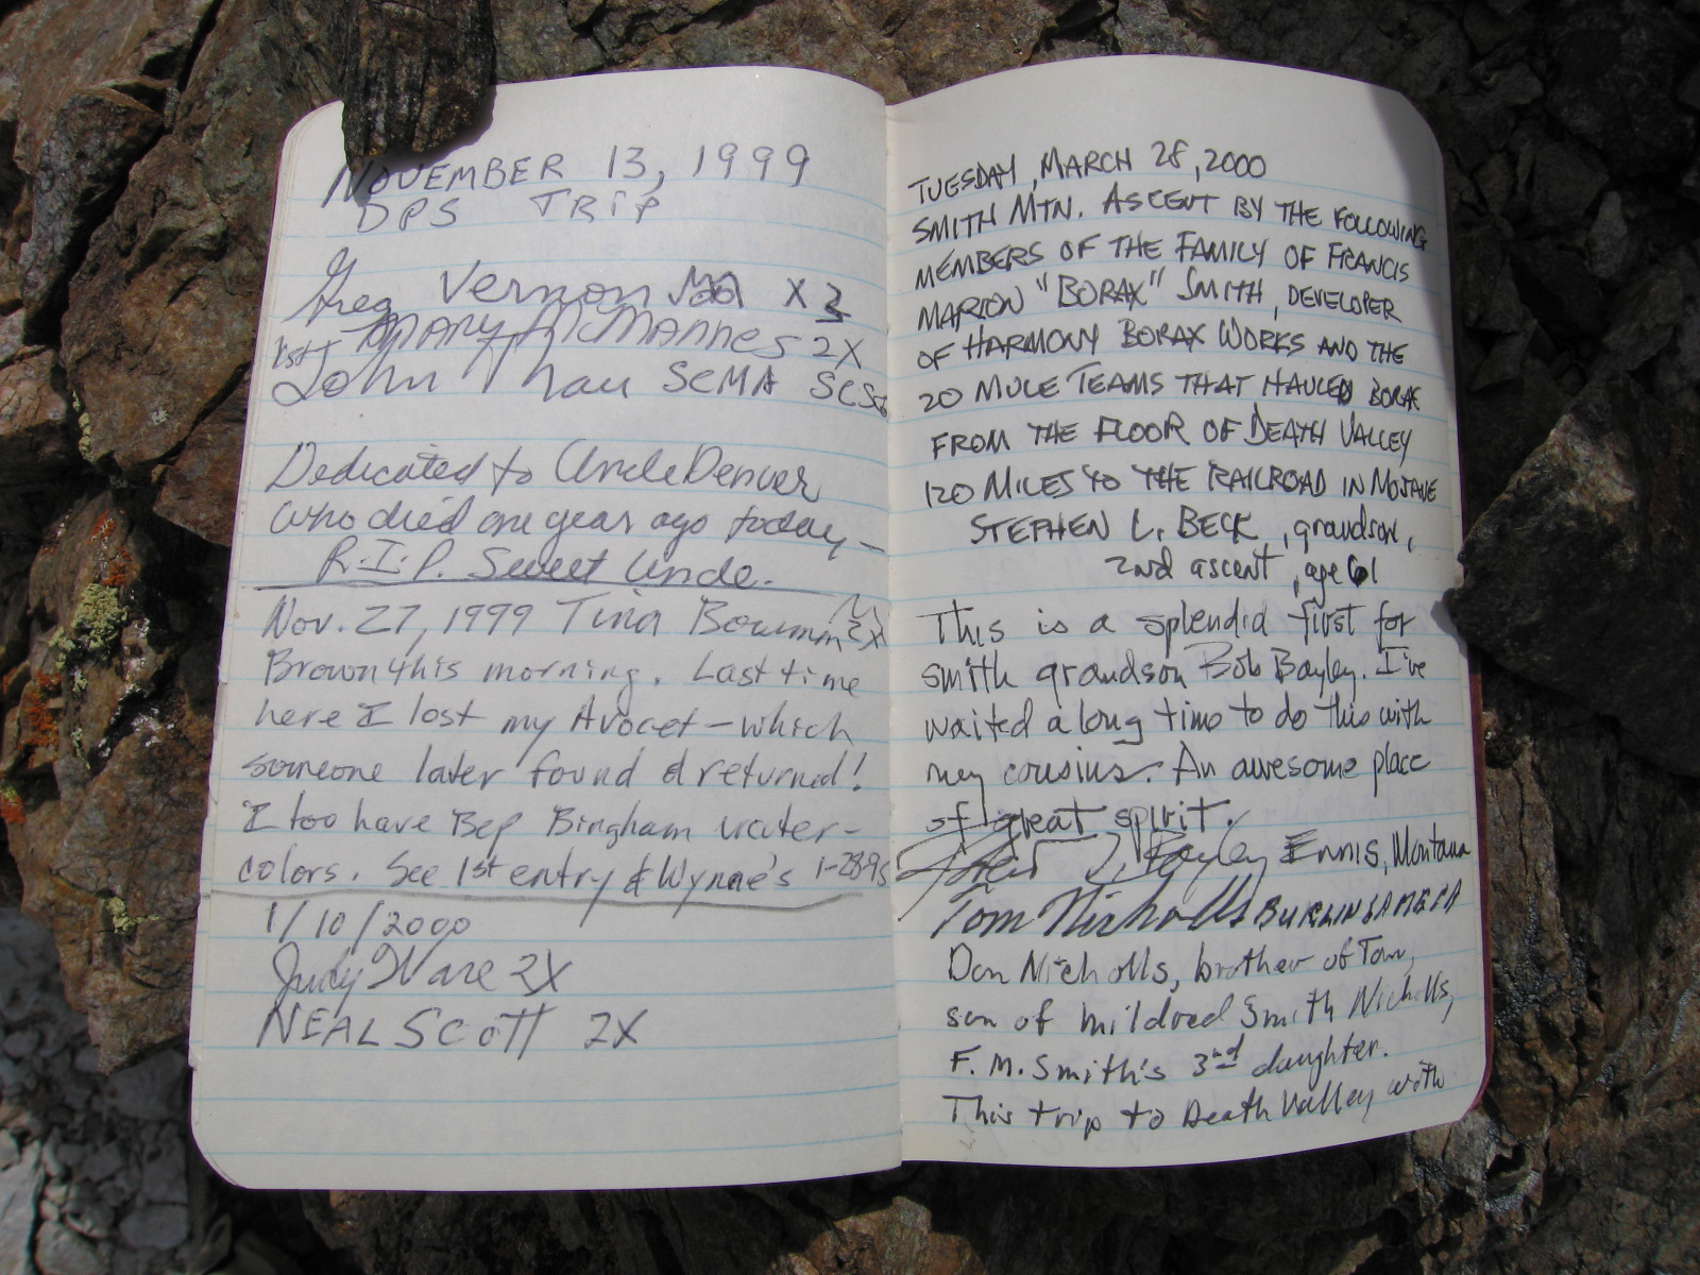 NOVEMBER 13, 1999
DPS TRIP
Greg Vernon X3
MARY McMANNES 2X
1st John Thau SCMA SCS
Dedicated to Uncle Denver
who died one year ago today —
R.I.P. Sweet Uncle.
Nov. 27, 1999 Tina Bowman 2X
Brown this morning. Last time
here I lost my Avocet – which
someone later found & returned!
I too have Bep Bingham water-
colors. See 1st entry & Wynne's 1-28-95
1/10/2000
Judy Ware 2X
NEAL SCOTT 2X
TUESDAY, MARCH 28, 2000
SMITH MTN. ASCENT BY THE FOLLOWING
MEMBERS OF THE FAMILY OF FRANCIS
MARION "BORAX" SMITH, DEVELOPER
OF HARMONY BORAX WORKS AND THE
20 MULE TEAMS THAT HAULED BORAX
FROM THE FLOOR OF DEATH VALLEY
120 MILES TO THE RAILROAD IN MOJAVE
STEPHEN L. BECK, grandson,
2nd ascent, age 61
This is a splendid first for
smith grandson Bob Bayley. I've
waited a long time to do this with
my cousins. An awesome place
of great spirit.
Bayley ENNIS, Montana
Tom Nicholls BURLINGAME CA
Don Nicholls, brother of Tom,
son of Mildred Smith Nicholls,
F. M. Smith's 3rd daughter.
This trip to Death Valley with